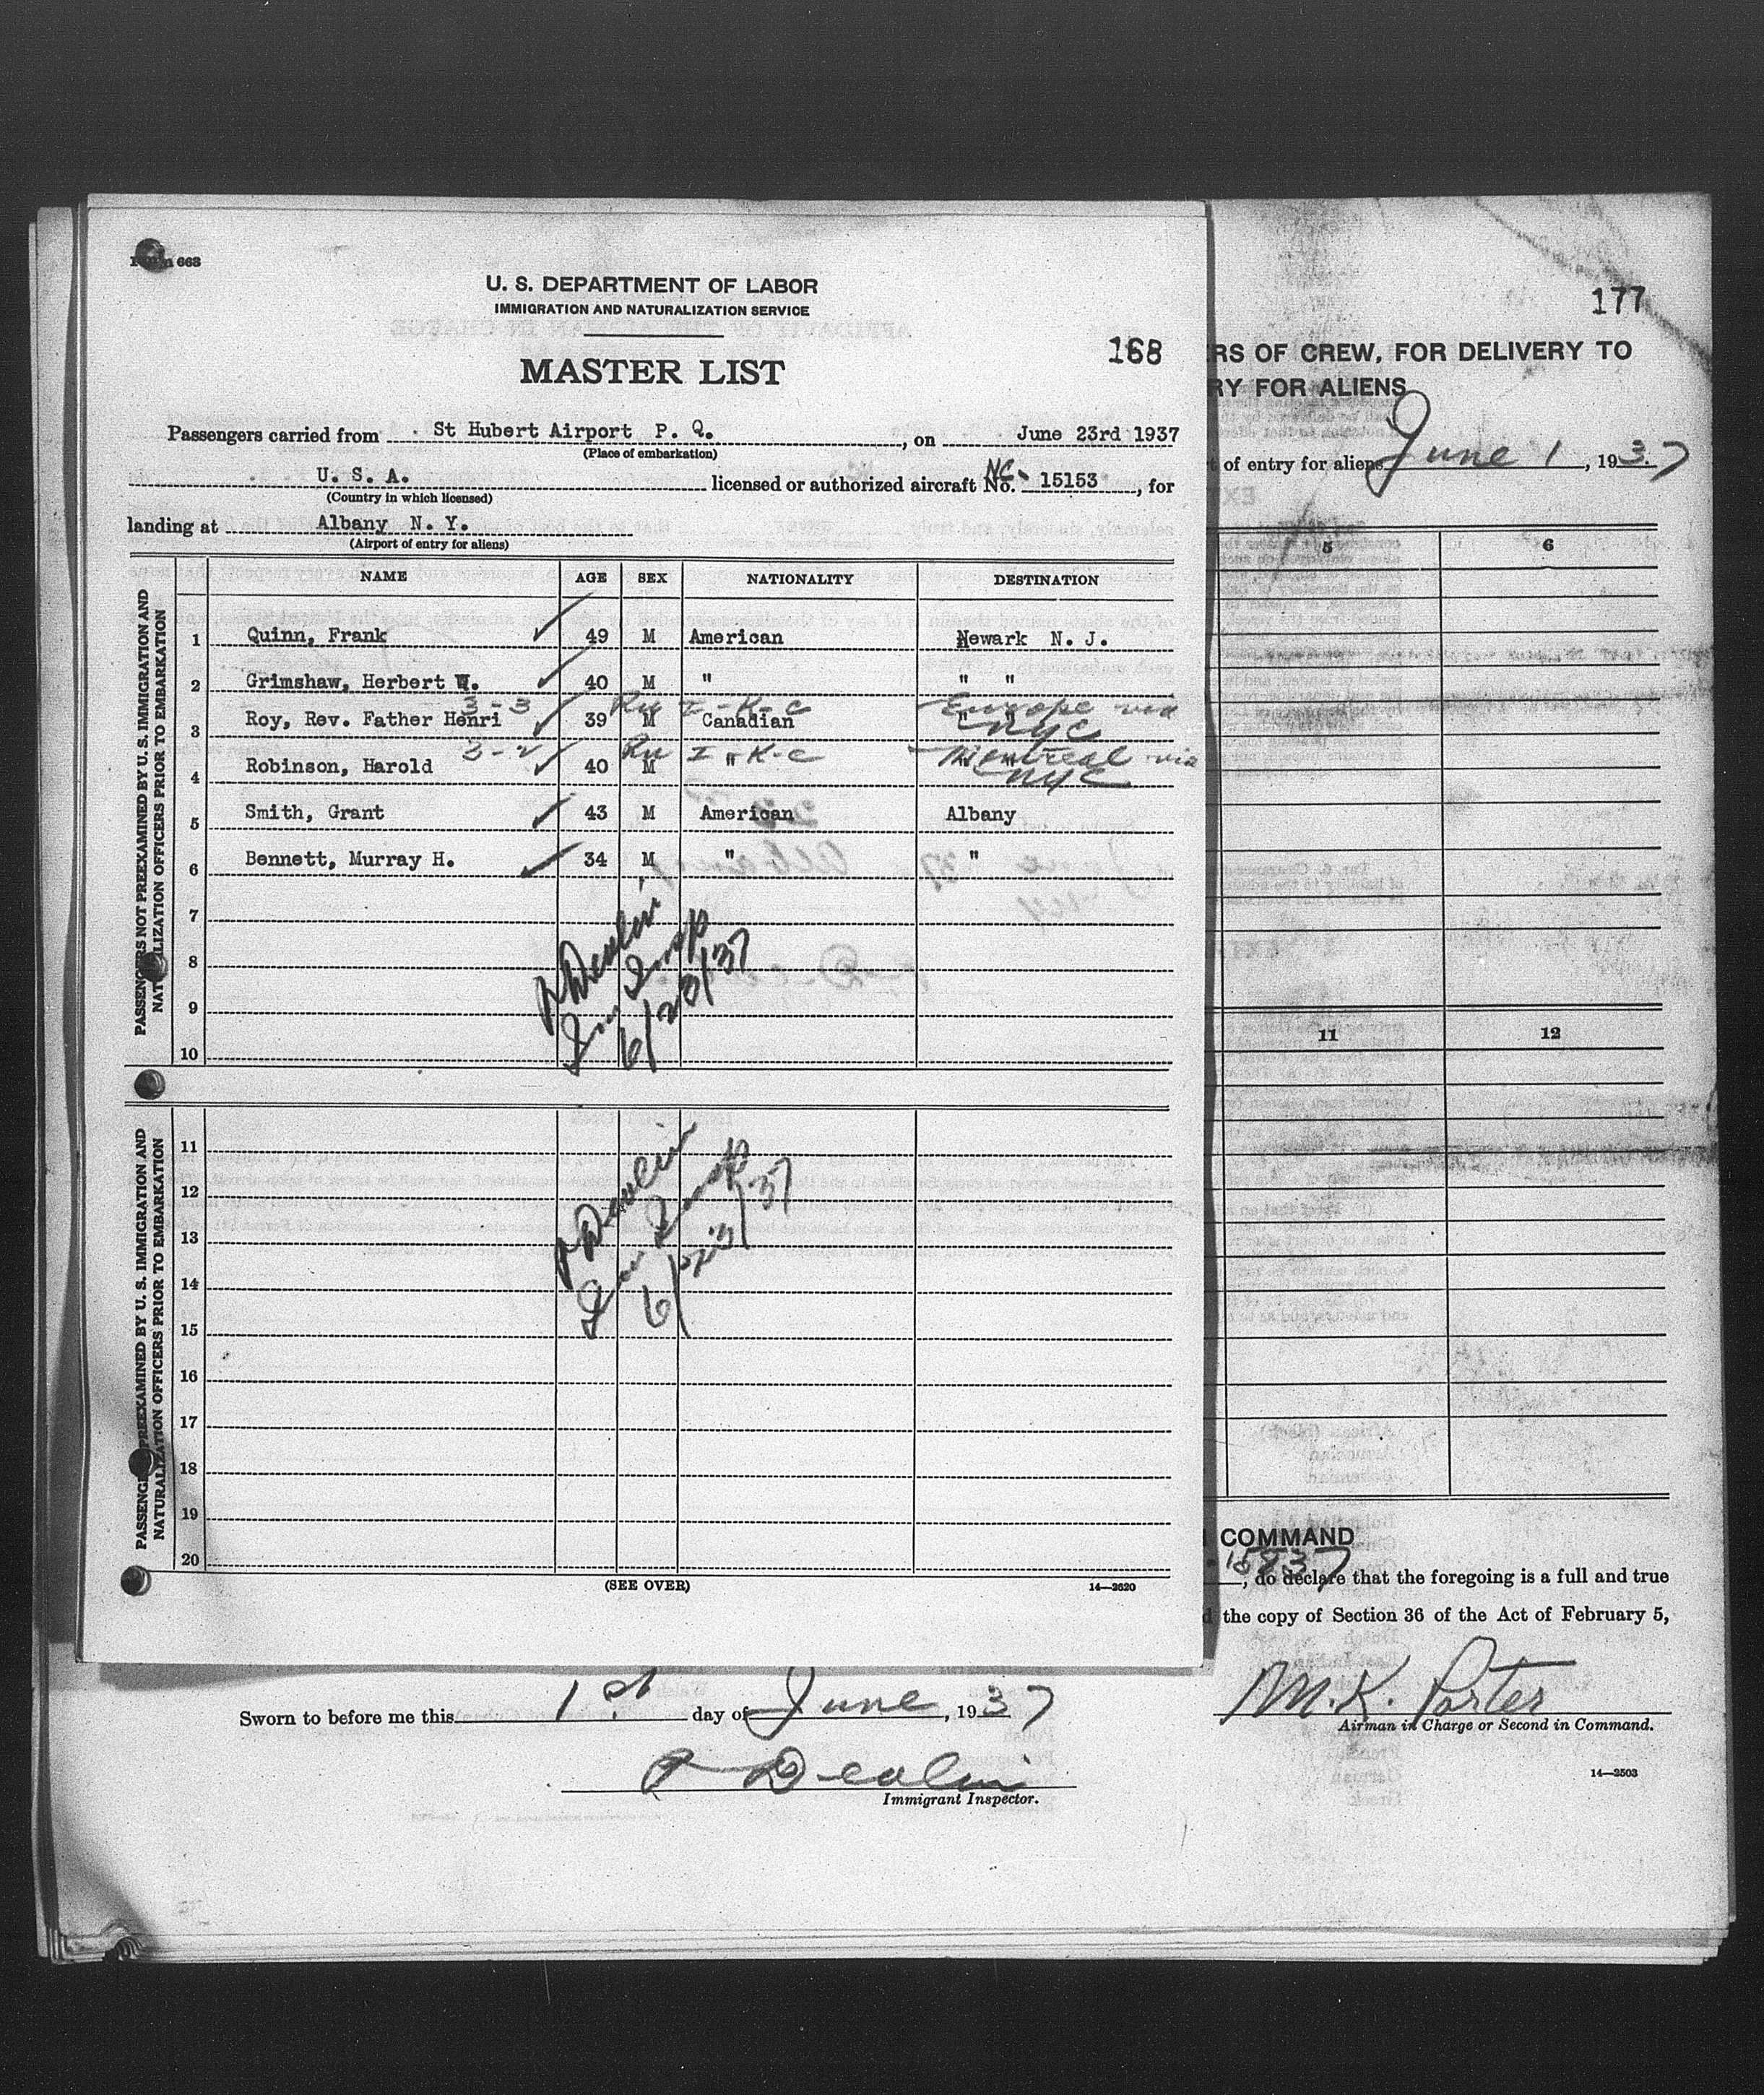 Form 663
U. S. DEPARTMENT OF LABOR
IMMIGRATION AND NATURALIZATION SERVICE
MASTER LIST
168
Passengers carried from St Hubert Airport P. Q. , on June 23rd 1937
(Place of embarkation)
U. S. A. licensed or authorized aircraft No. NC- 15153 , for
(Country in which licensed)
landing at Albany N. Y.
(Airport of entry for aliens)
NAME AGE SEX NATIONALITY DESTINATION
PASSENGERS NOT PREEXAMINED BY U. S. IMMIGRATION AND
NATURALIZATION OFFICERS PRIOR TO EMBARKATION
1 Quinn, Frank 49 M American Newark N. J.
2 Grimshaw, Herbert W. 40 M " " "
3-3 I-K-C Europe via
3 Roy, Rev. Father Henri 39 M Canadian " "
NYC
3-2 I-K-C Montreal via
4 Robinson, Harold 40 M "
NYC
5 Smith, Grant 43 M American Albany
6 Bennett, Murray H. 34 M " "
7
8
9
10
Imm Insp
6/23/37
PASSENGERS PREEXAMINED BY U. S. IMMIGRATION AND
NATURALIZATION OFFICERS PRIOR TO EMBARKATION
11
12
13
14
15
16
17
18
19
20
Imm Insp
6/23/37
(SEE OVER)
14—2620
177
RS OF CREW, FOR DELIVERY TO
RY FOR ALIENS
of entry for aliens June 1 , 1937
5 6
11 12
COMMAND
15837
, do declare that the foregoing is a full and true
the copy of Section 36 of the Act of February 5,
M. K. Porter
Airman in Charge or Second in Command.
14—2503
Sworn to before me this 1st day of June , 1937
Immigrant Inspector.